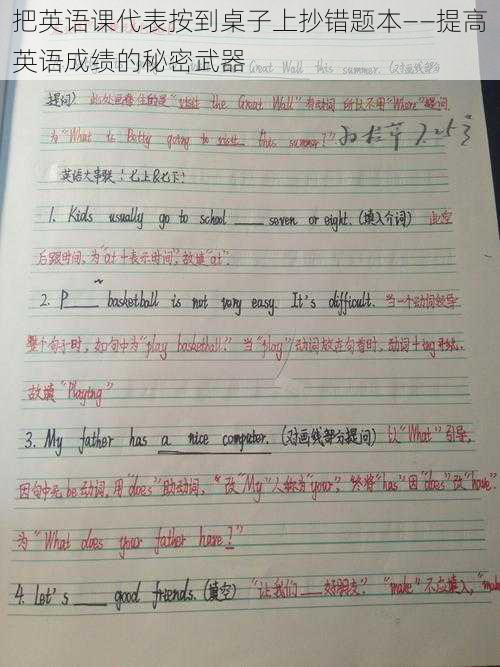 把英语课代表按到桌子上抄错题本——提高
英语成绩的秘密武器
Great Wall this summer. (对画线部分
提问) 此处画线的是"visit the Great Wall"有动词 所以不用"Where"提问.
为"What is Betty going to visit this summer?"
英语大事联!七上&七下!
1. Kids usually go to school ____ seven or eight. (填入介词) 此空
后跟时间,为"at+表示时间",故填"at".
2. P____ basketball is not very easy. It's difficult. 当一个动词短语
整个句子时,如句中为"play basketball." 当"play"动词放在句首时,动词+ing形式.
故填"Playing"
3. My father has a nice computer. (对画线部分提问) 以"What"引导,
因句中无be动词,用"does"助动词, "改"My"人称为"your", 将"has"因"does"改"have"
为"What does your father have?"
4. Let's ____ good friends. (填空) "让我们____好朋友". "make"不应填入,"mak